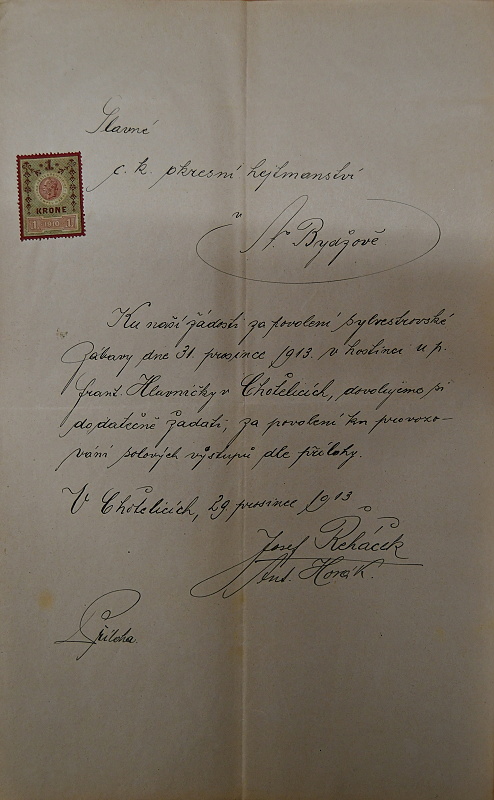 Slavné
1
KRONE
1 1910 1
c. k. okresní hejtmanství
v
N. Bydžově
Ku naší žádosti za povolení sylvestrovské
zábavy dne 31. prosince 1913. v hostinci u p.
Frant. Hlavničky v Chotělicích, dovolujeme si
dodatečně žádati, za povolení ku provozo-
vání solových výstupů dle přílohy.
V Chotělicích, 29 prosince 1913
Josef Řeháček
Ant. Horák.
Příloha.